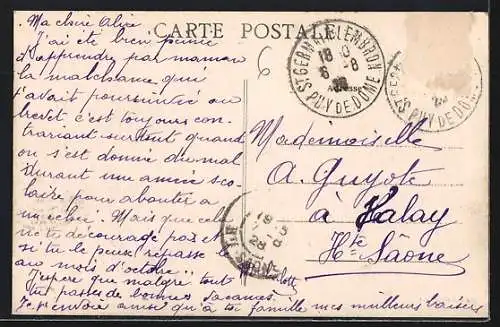 CARTE POSTALE
Ma chère Alice
J'ai été bien peinée
d'apprendre par maman
la malchance que
t'avait poursuivie au
brevet c'est toujours con-
trariant surtout quand
on s'est donné du mal
durant une année sco-
laire pour aboutir à
un échec. Mais que cela
ne te décourage pas et
si tu le peux repasse le
au mois d'octobre.
J'espère que malgré tout
tu passes de bonnes vacances.
Je t'envoie ainsi qu'à ta famille mes meilleurs baisers
6
ST GERMAIN LEMBRON
PUY DE DOME
18
6 - 8
Adresse
PUY DE DOME
Mademoiselle
A. Guyot
à
Hte Saône